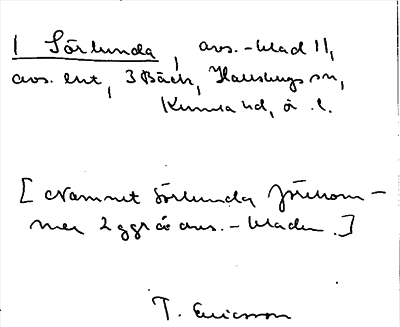 1 Sörlunda, avs.-blad 11,
avs. ent, 3 Bäck, Hallsbergs sn,
Kumla hd, ö. l.
[Namnet Sörlunda förekom-
mer 2 ggr å avs.-bladen.]
T. Ericsson